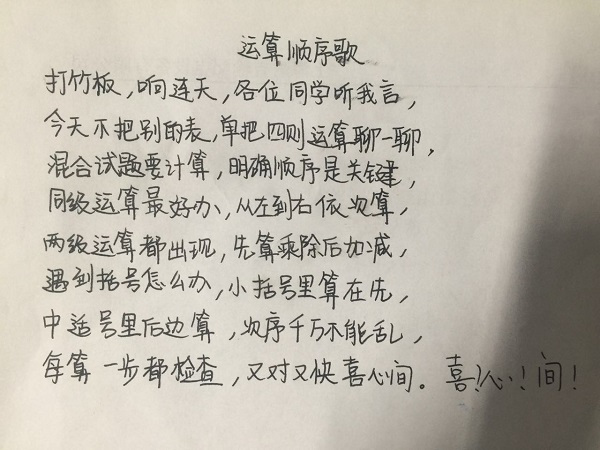 运算顺序歌
打竹板,响连天,各位同学听我言,
今天不把别的表,单把四则运算聊一聊,
混合试题要计算,明确顺序是关键,
同级运算最好办,从左到右依次算,
两级运算都出现,先算乘除后加减,
遇到括号怎么办,小括号里算在先,
中适号里后边算,次序千万不能乱,
每算一步都检查,又对又快喜心间。喜!心!间!